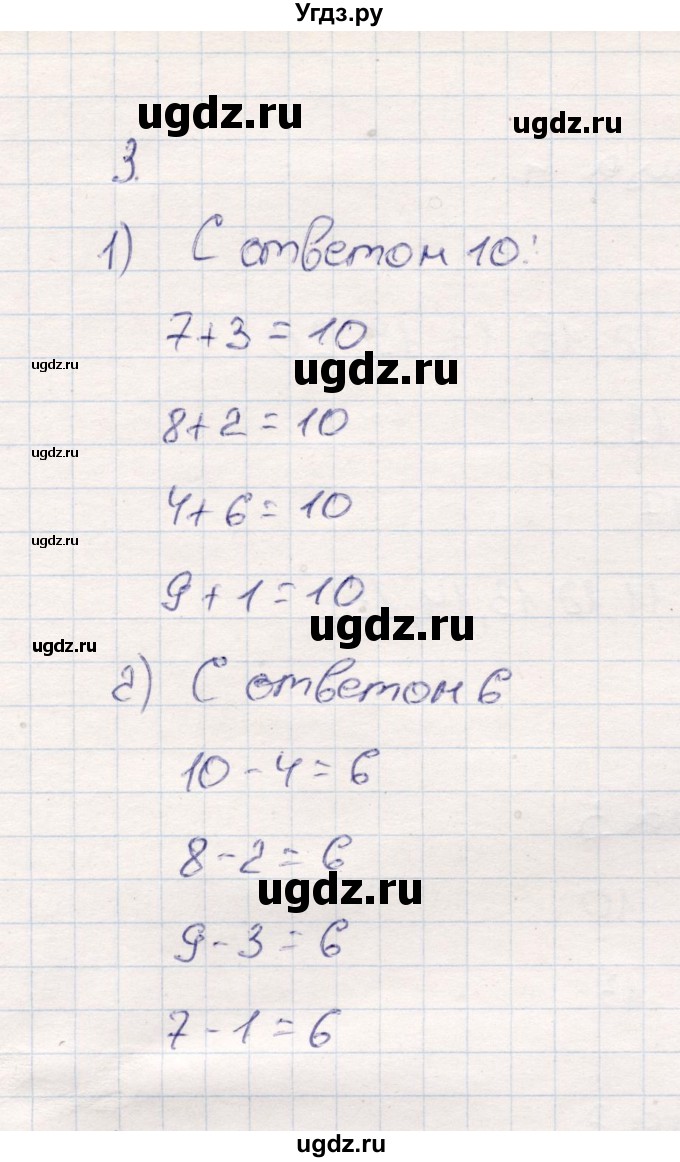 Угдз.ру
ugdz.ru
ugdz.ru
3.
1) С ответом 10:
7+3=10
ugdz.ru
ugdz.ru
8+2=10
ugdz.ru
4+6=10
ugdz.ru
9+1=10
ugdz.ru
ugdz.ru
2) С ответом 6
10-4=6
8-2=6
ugdz.ru
9-3=6
7-1=6
ugdz.ru